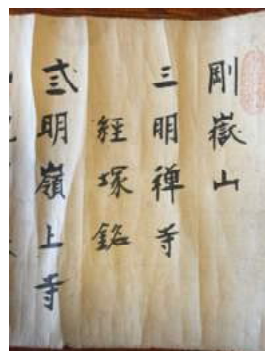 剛嶽山
三明禅寺
経塚銘
弐明嶺上寺